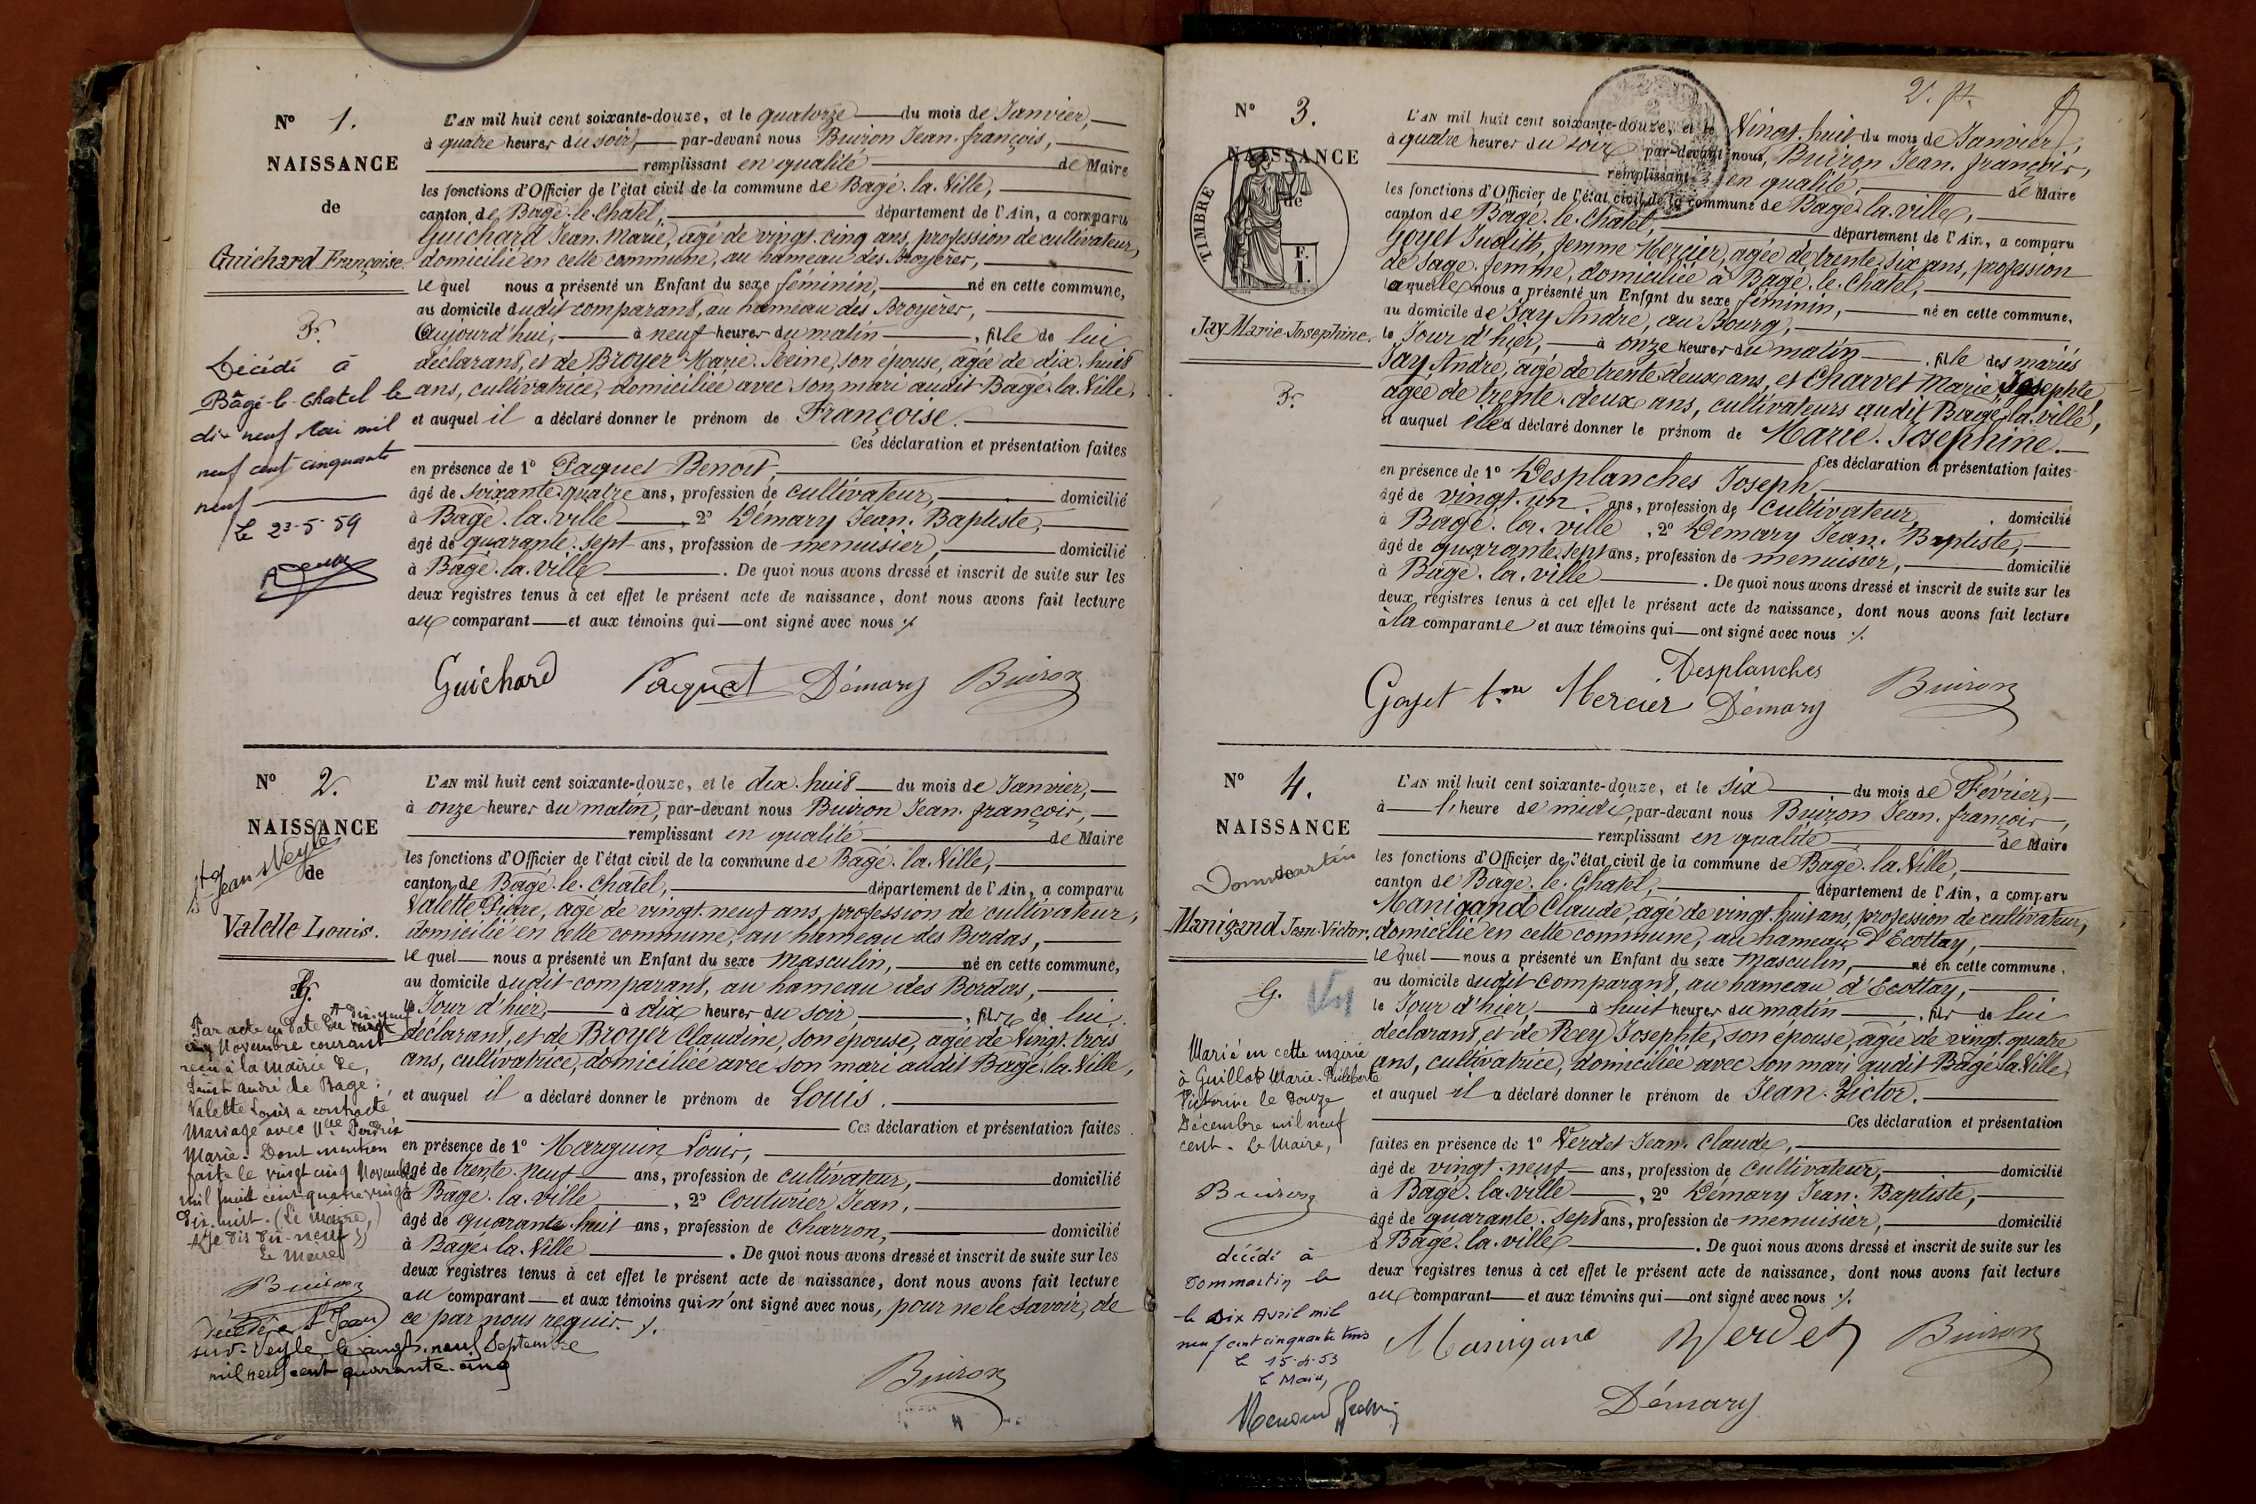 N° 1.
NAISSANCE
de
Guichard Françoise.
F.
Décédé à
Bâgé-le-Chatel le
dix neuf Mai mil
neuf cent cinquante
neuf
Le 23-5-59
L'AN mil huit cent soixante-douze, et le quatorze du mois de Janvier,
à quatre heures du soir, par-devant nous Buiron Jean-françois,
remplissant en qualité de Maire
les fonctions d'Officier de l'état civil de la commune de Bagé-la-Ville,
canton de Bagé-le-Chatel, département de l'Ain, a comparu
Guichard Jean-Marie, agé de vingt-cinq ans, profession de cultivateur,
domicilié en cette commune, au hameau des Broyères,
lequel nous a présenté un Enfant du sexe féminin, né en cette commune,
au domicile dudit comparant, au hameau des Broyères,
Aujourd'hui, à neuf heures du matin, fille de lui
déclarant, et de Broyer Marie-Reine, son épouse, agée de dix-huit
ans, cultivatrice, domiciliée avec son mari audit Bagé-la-Ville,
et auquel il a déclaré donner le prénom de Françoise.
Ces déclaration et présentation faites
en présence de 1° Paquet Benoit,
âgé de soixante quatre ans, profession de cultivateur, domicilié
à Bagé-la-ville, 2° Démary Jean-Baptiste,
âgé de quarante-sept ans, profession de menuisier, domicilié
à Bagé-la-ville. De quoi nous avons dressé et inscrit de suite sur les
deux registres tenus à cet effet le présent acte de naissance, dont nous avons fait lecture
au comparant et aux témoins qui ont signé avec nous ./.
Guichard Paquet Démary Buiron
N° 2.
NAISSANCE
St Jean s/Veyle
de
Valette Louis.
G.
Par acte en date du vingt
A dix-neuf
cinq Novembre courant
reçu à la Mairie de
Saint André de Bagé;
Valette Louis a contracté
Mariage avec Mlle Perdrix
Marie. Dont mention
faite le vingt cinq Novembre
mil huit cent quatre vingt
dix-huit. (Le Maire,)
A Je dis dix-neuf))
Le Maire
Buiron
décédé à St Jean
sur-Veyle le vingt-neuf Septembre
mil neuf cent quarante-cinq
L'AN mil huit cent soixante-douze, et le dix-huit du mois de Janvier,
à onze heures du matin, par-devant nous Buiron Jean-françois,
remplissant en qualité de Maire
les fonctions d'Officier de l'état civil de la commune de Bagé-la-Ville,
canton de Bagé-le-Chatel, département de l'Ain, a comparu
Valette Pierre, agé de vingt-neuf ans, profession de cultivateur,
domicilié en cette commune, au hameau des Bordas,
lequel nous a présenté un Enfant du sexe masculin, né en cette commune,
au domicile dudit comparant, au hameau des Bordas,
le Jour d'hier, à dix heures du soir, fils de lui
déclarant, et de Broyer Claudine, son épouse, agée de Vingt-trois
ans, cultivatrice, domiciliée avec son mari audit Bagé-la-Ville,
et auquel il a déclaré donner le prénom de Louis.
Ces déclaration et présentation faites
en présence de 1° Marguin Louis,
âgé de trente-neuf ans, profession de cultivateur, domicilié
à Bagé-la-ville, 2° Couturier Jean,
âgé de quarante-huit ans, profession de charron, domicilié
à Bagé-la-Ville. De quoi nous avons dressé et inscrit de suite sur les
deux registres tenus à cet effet le présent acte de naissance, dont nous avons fait lecture
au comparant et aux témoins qui n'ont signé avec nous, pour ne le savoir, de
ce par nous requis ./.
Buiron
N° 3.
NAISSANCE
de
TIMBRE
F.
1.
Jay Marie-Josephine.
F.
L'AN mil huit cent soixante-douze, et le Vingt-huit du mois de Janvier,
à quatre heures du soir, par-devant nous, Buiron Jean-françois,
remplissant en qualité, de Maire
les fonctions d'Officier de l'état civil de la commune de Bagé-la-ville,
canton de Bagé-le-Chatel, département de l'Ain, a comparu
Goyet Judith, femme Mercier, agée de trente-six ans, profession
de sage-femme, domiciliée à Bagé-le-Chatel,
laquelle nous a présenté un Enfant du sexe féminin, né en cette commune,
au domicile de Jay André, au Bourg,
le Jour d'hier, à onze heures du matin, fille des mariés
Jay André, agé de trente-deux ans, et Charvet Marie, Josephte
agée de trente-deux ans, cultivateurs audit Bagé-la-ville,
et auquel elle a déclaré donner le prénom de Marie-Josephine.
Ces déclaration et présentation faites
en présence de 1° Desplanches Joseph,
âgé de vingt-un ans, profession de cultivateur, domicilié
à Bagé-la-ville, 2° Démary Jean-Baptiste,
âgé de quarante-sept ans, profession de menuisier, domicilié
à Bagé-la-ville. De quoi nous avons dressé et inscrit de suite sur les
deux registres tenus à cet effet le présent acte de naissance, dont nous avons fait lecture
à la comparante et aux témoins qui ont signé avec nous ./.
Desplanches
Goyet fme Mercier Démary Buiron
N° 4.
NAISSANCE
Dommartin
Manigand Jean-Victor.
G.
Marié en cette mairie
à Guillot Marie-Philiberte
Victorine le douze
Décembre mil neuf
cent. Le Maire,
Buiron
décédé à
Dommartin le
le dix Avril mil
neuf cent cinquante trois
Le 15-4-53
Le Maire,
L'AN mil huit cent soixante-douze, et le six du mois de Février,
à l'heure de midi, par-devant nous Buiron Jean-françois,
remplissant en qualité de Maire
les fonctions d'Officier de l'état civil de la commune de Bagé-la-Ville,
canton de Bagé-le-Chatel, département de l'Ain, a comparu
Manigand Claude, agé de vingt-huit ans, profession de cultivateur,
domicilié en cette commune, au hameau d'Ecottay,
lequel nous a présenté un Enfant du sexe masculin, né en cette commune,
au domicile dudit comparant, au hameau d'Ecottay,
le Jour d'hier, à huit heures du matin, fils de lui
déclarant, et de Rey Josephte, son épouse, agée de vingt-quatre
ans, cultivatrice, domiciliée avec son mari audit Bagé-la-Ville,
et auquel il a déclaré donner le prénom de Jean-Victor.
Ces déclaration et présentation
faites en présence de 1° Verdet Jean-Claude,
âgé de vingt-neuf ans, profession de cultivateur, domicilié
à Bagé-la-ville, 2° Démary Jean-Baptiste,
âgé de quarante-sept ans, profession de menuisier, domicilié
à Bagé-la-ville. De quoi nous avons dressé et inscrit de suite sur les
deux registres tenus à cet effet le présent acte de naissance, dont nous avons fait lecture
au comparant et aux témoins qui ont signé avec nous ./.
Manigand Verdet Buiron
Démary